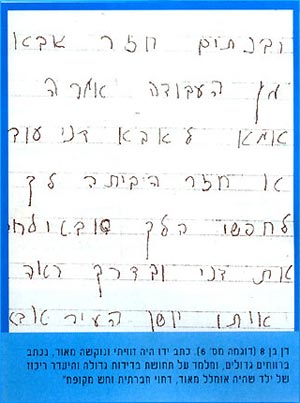 ובנתים חזר אבא
מן העבודה אמרה
אמא לאבא דני עוד
או חזר הביתה לך
לחפשו הלך
אות דני ובדרך ראה
אותו ישן העיר
דן בן 8 (דוגמה מס' 6). כתב ידו היה זוויתי ונוקשה מאוד, נכתב
ברווחים גדולים, ומלמד על תחושת בדידות גדולה והיעדר ריכוז
של ילד שהיה אומלל מאוד, דחוי חברתית וחש מקופח"